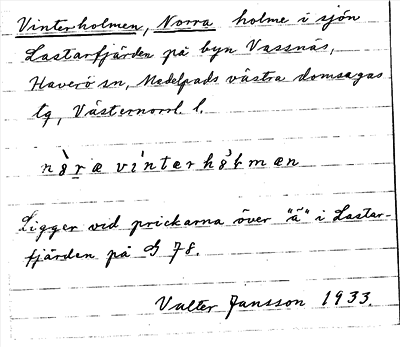 Vinterholmen, Norra holme i sjön
Lastarfjärden på byn Vassnäs,
Haverö sn, Medelpads västra domsagas
tg, Västernorrl. l.
nòræ víntærhòlmæn
Ligger vid prickarna över "ä" i Lastar-
fjärden på G 78.
Valter Jansson 1933.